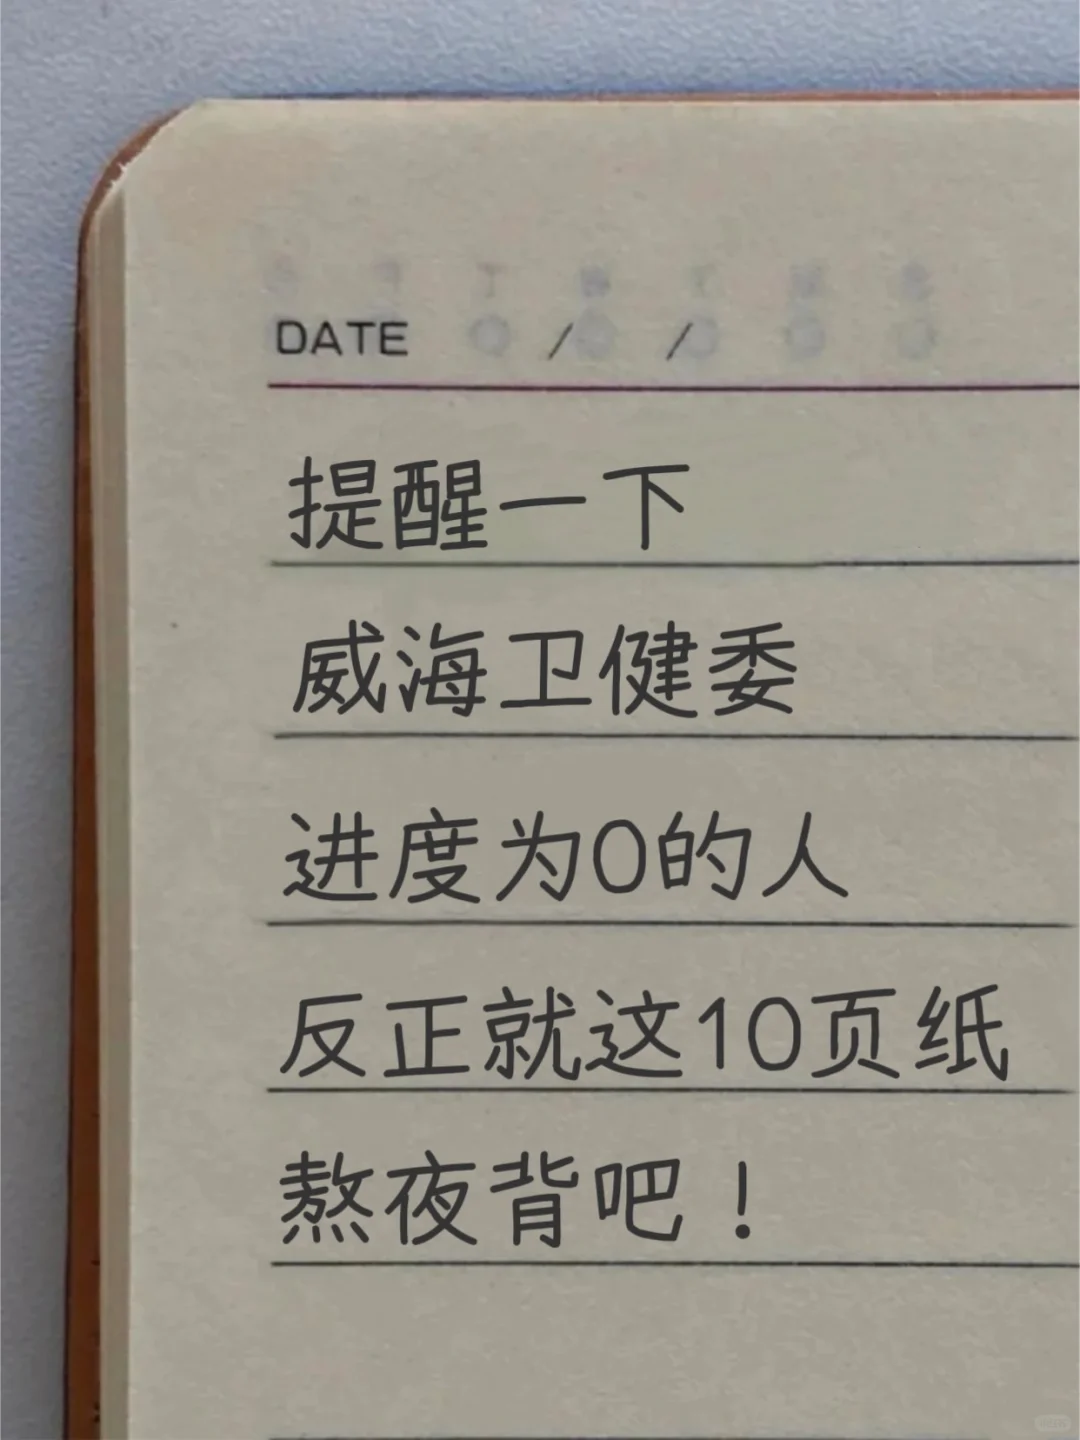 DATE / /
提醒一下
威海卫健委
进度为0的人
反正就这10页纸
熬夜背吧！